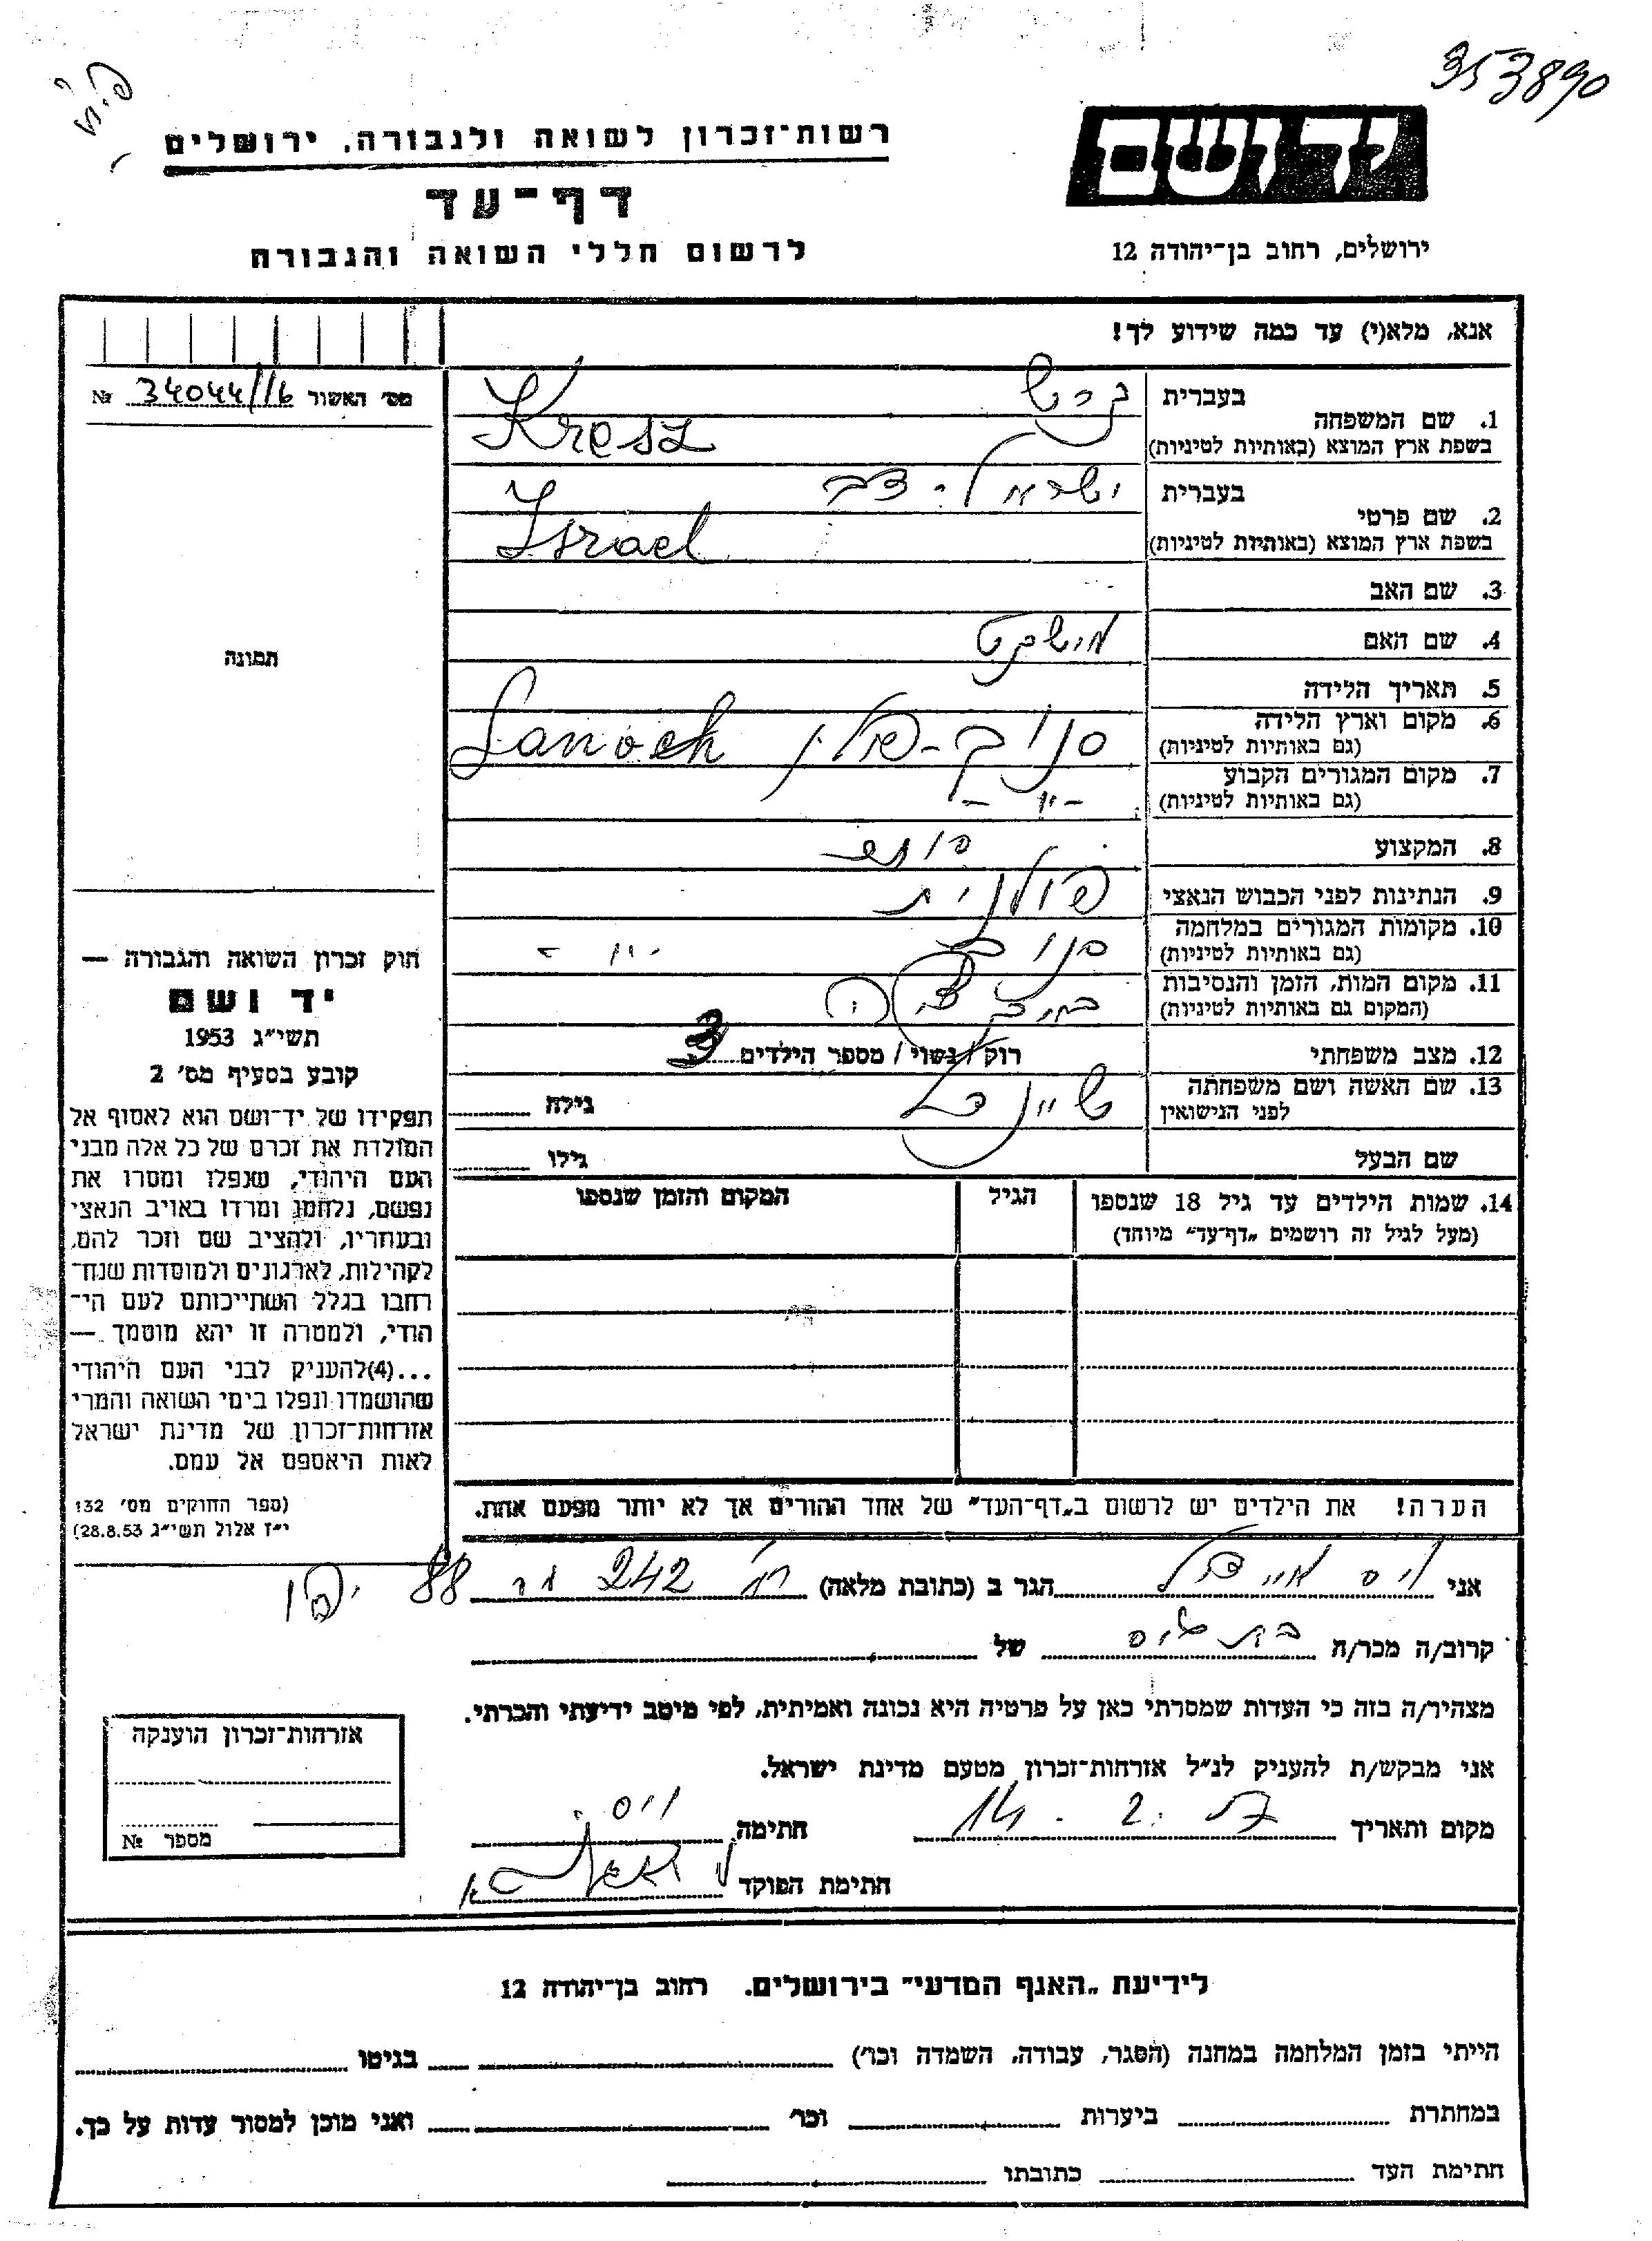 353890
רשות־זכרון לשואה ולגבורה, ירושלים
יד ושם
דף־עד
ירושלים, רחוב בן־יהודה 12
לרשום חללי השואה והגבורה
אנא, מלא(י) עד כמה שידוע לך!
מס׳ האשור 34044/16 №
1. שם המשפחה
בעברית
בשפת ארץ המוצא (באותיות לטיניות) Kresz
2. שם פרטי
בעברית ישראל -
בשפת ארץ המוצא (באותיות לטיניות) Israel
3. שם האב
4. שם האם
תמונה
5. תאריך הלידה
6. מקום וארץ הלידה
(גם באותיות לטיניות) סנוק - פולין Sanoch
7. מקום המגורים הקבוע
(גם באותיות לטיניות) - יי -
8. המקצוע
9. הנתינות לפני הכבוש הנאצי פולנית
10. מקומות המגורים במלחמה
(גם באותיות לטיניות) סנוק - יי -
11. מקום המות, הזמן והנסיבות
(המקום גם באותיות לטיניות)
12. מצב משפחתי רוק / נשוי / מספר הילדים 3
13. שם האשה ושם משפחתה
לפני הנישואין
גילה
שם הבעל גילו
14. שמות הילדים עד גיל 18 שנספו
(מעל לגיל זה רושמים „דף־עד" מיוחד)
הגיל
המקום והזמן שנספו
חוק זכרון השואה והגבורה —
יד ושם
תשי״ג 1953
קובע בסעיף מס׳ 2
תפקידו של יד־ושם הוא לאסוף אל
המולדת את זכרם של כל אלה מבני
העם היהודי, שנפלו ומסרו את
נפשם, נלחמו ומרדו באויב הנאצי
ובעוזריו, ולהציב שם וזכר להם,
לקהילות, לארגונים ולמוסדות שנח־
רבו בגלל השתייכותם לעם הי־
הודי, ולמטרה זו יהא מוסמך —
...(4) להעניק לבני העם היהודי
שהושמדו ונפלו בימי השואה והמרי
אזרחות־זכרון של מדינת ישראל
לאות היאספם אל עמם.
(ספר החוקים מס׳ 132
י״ז אלול תשי״ג 28.8.53)
הערה! את הילדים יש לרשום ב„דף־העד" של אחד ההורים אך לא יותר מפעם אחת.
אני וייס הגר ב (כתובת מלאה) רח׳ 242 88 יפו
קרוב/ה מכר/ה של
מצהיר/ה בזה כי העדות שמסרתי כאן על פרטיה היא נכונה ואמיתית, לפי מיטב ידיעתי והכרתי.
אני מבקש/ת להעניק לנ״ל אזרחות־זכרון מטעם מדינת ישראל.
מקום ותאריך 14 . 2. חתימה וייס
חתימת הפוקד
אזרחות־זכרון הוענקה
מספר №
לידיעת „האגף המדעי" בירושלים. רחוב בן־יהודה 12
הייתי בזמן המלחמה במחנה (הסגר, עבודה, השמדה וכו׳) בגיטו
במחתרת ביערות וכו׳ ואני מוכן למסור עדות על כך.
חתימת העד כתובתו